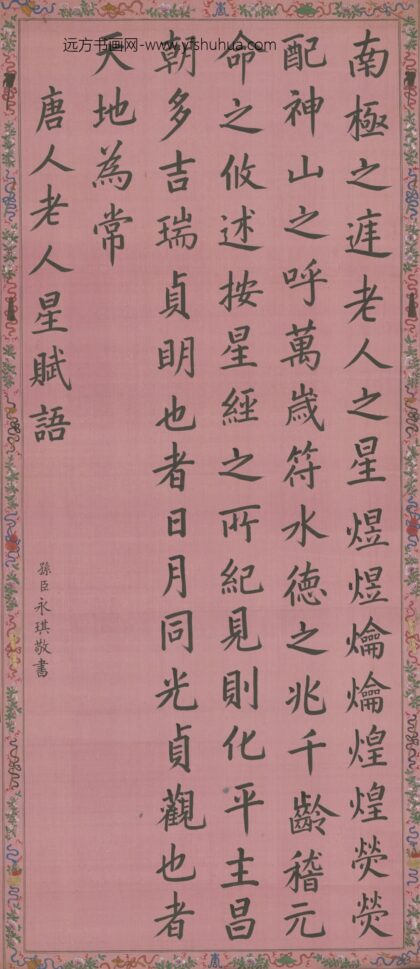 远方书画网-www.yfshuhua.com
南極之涯老人之星煜煜爚爚煌煌熒熒
配神山之呼萬歲符水德之兆千齡稽元
命之攸述按星經之所紀見則化平主昌
朝多吉瑞貞明也者日月同光貞觀也者
天地為常
唐人老人星賦語
孫臣永琪敬書